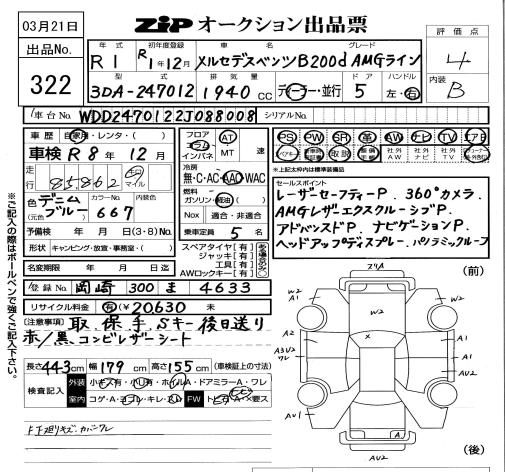 03月21日
ZIP オークション出品票
出品No.
322
評価点
4
内装
B
年式
R1
初年度登録
R1年12月
車名
メルセデスベンツB200d
グレード
AMGライン
型式
3DA-247012
排気量
1940 CC
ディーラー・並行
ドア
5
ハンドル
左・右
車台No.
WDD2470122J088008
シリアルNo.
車歴
自家用・レンタ・( )
車検 R8年12月
走行
85862
km
マイル
色 デニムブルー
(元色)
カラーNo.
667
内装色
予備検 年 月 日(3・8)No.
形状 キャンピング・放宣・事務室・( )
名変期限 年 月 日迄
登録No. 岡崎 300 ま 4633
リサイクル料金 有(¥20,630 未
フロア
コラム
インパネ
AT
MT
速
冷房
無・C・AC AAC WAC
燃料
ガソリン・軽油( )
NOX 適合・非適合
乗車定員 5 名
スペアタイヤ[有]
ジャッキ[有]
工具[有]
AWロックキー[有]
PS PW SR 革 AW ナビ TV エアB
取説
社外AW
社外ナビ
社外TV
★上記太枠内は標準装備品
セールスポイント
レーザーセーフティーP. 360°カメラ.
AMGレザーエクスクルーシブP.
アドバンスドP. ナビゲーションP.
ヘッドアップディスプレー. パノラミックルーフ
[注意事項] 取.保.手.Sキー後日送り
赤/黒.コンビレザーシート
長さ443cm 幅179cm 高さ155cm (車検証上の寸法)
検査記入
外装
小キズ有・小凹有・ホイルA・ドアミラーA・ワレ
室内
コゲ・A・ヨゴレ・キレ・スレ
FW
トビA・X要ス
F下廻りキズ.カバーワレ
※ご記入の際はボールペンで強くご記入下さい。
(前)
フクA
W2
A1
W2
W2
A1
A2
X
A1
A3U2
ワレ
A1
AU2
W2
AU1
A1
A
AU2
(後)